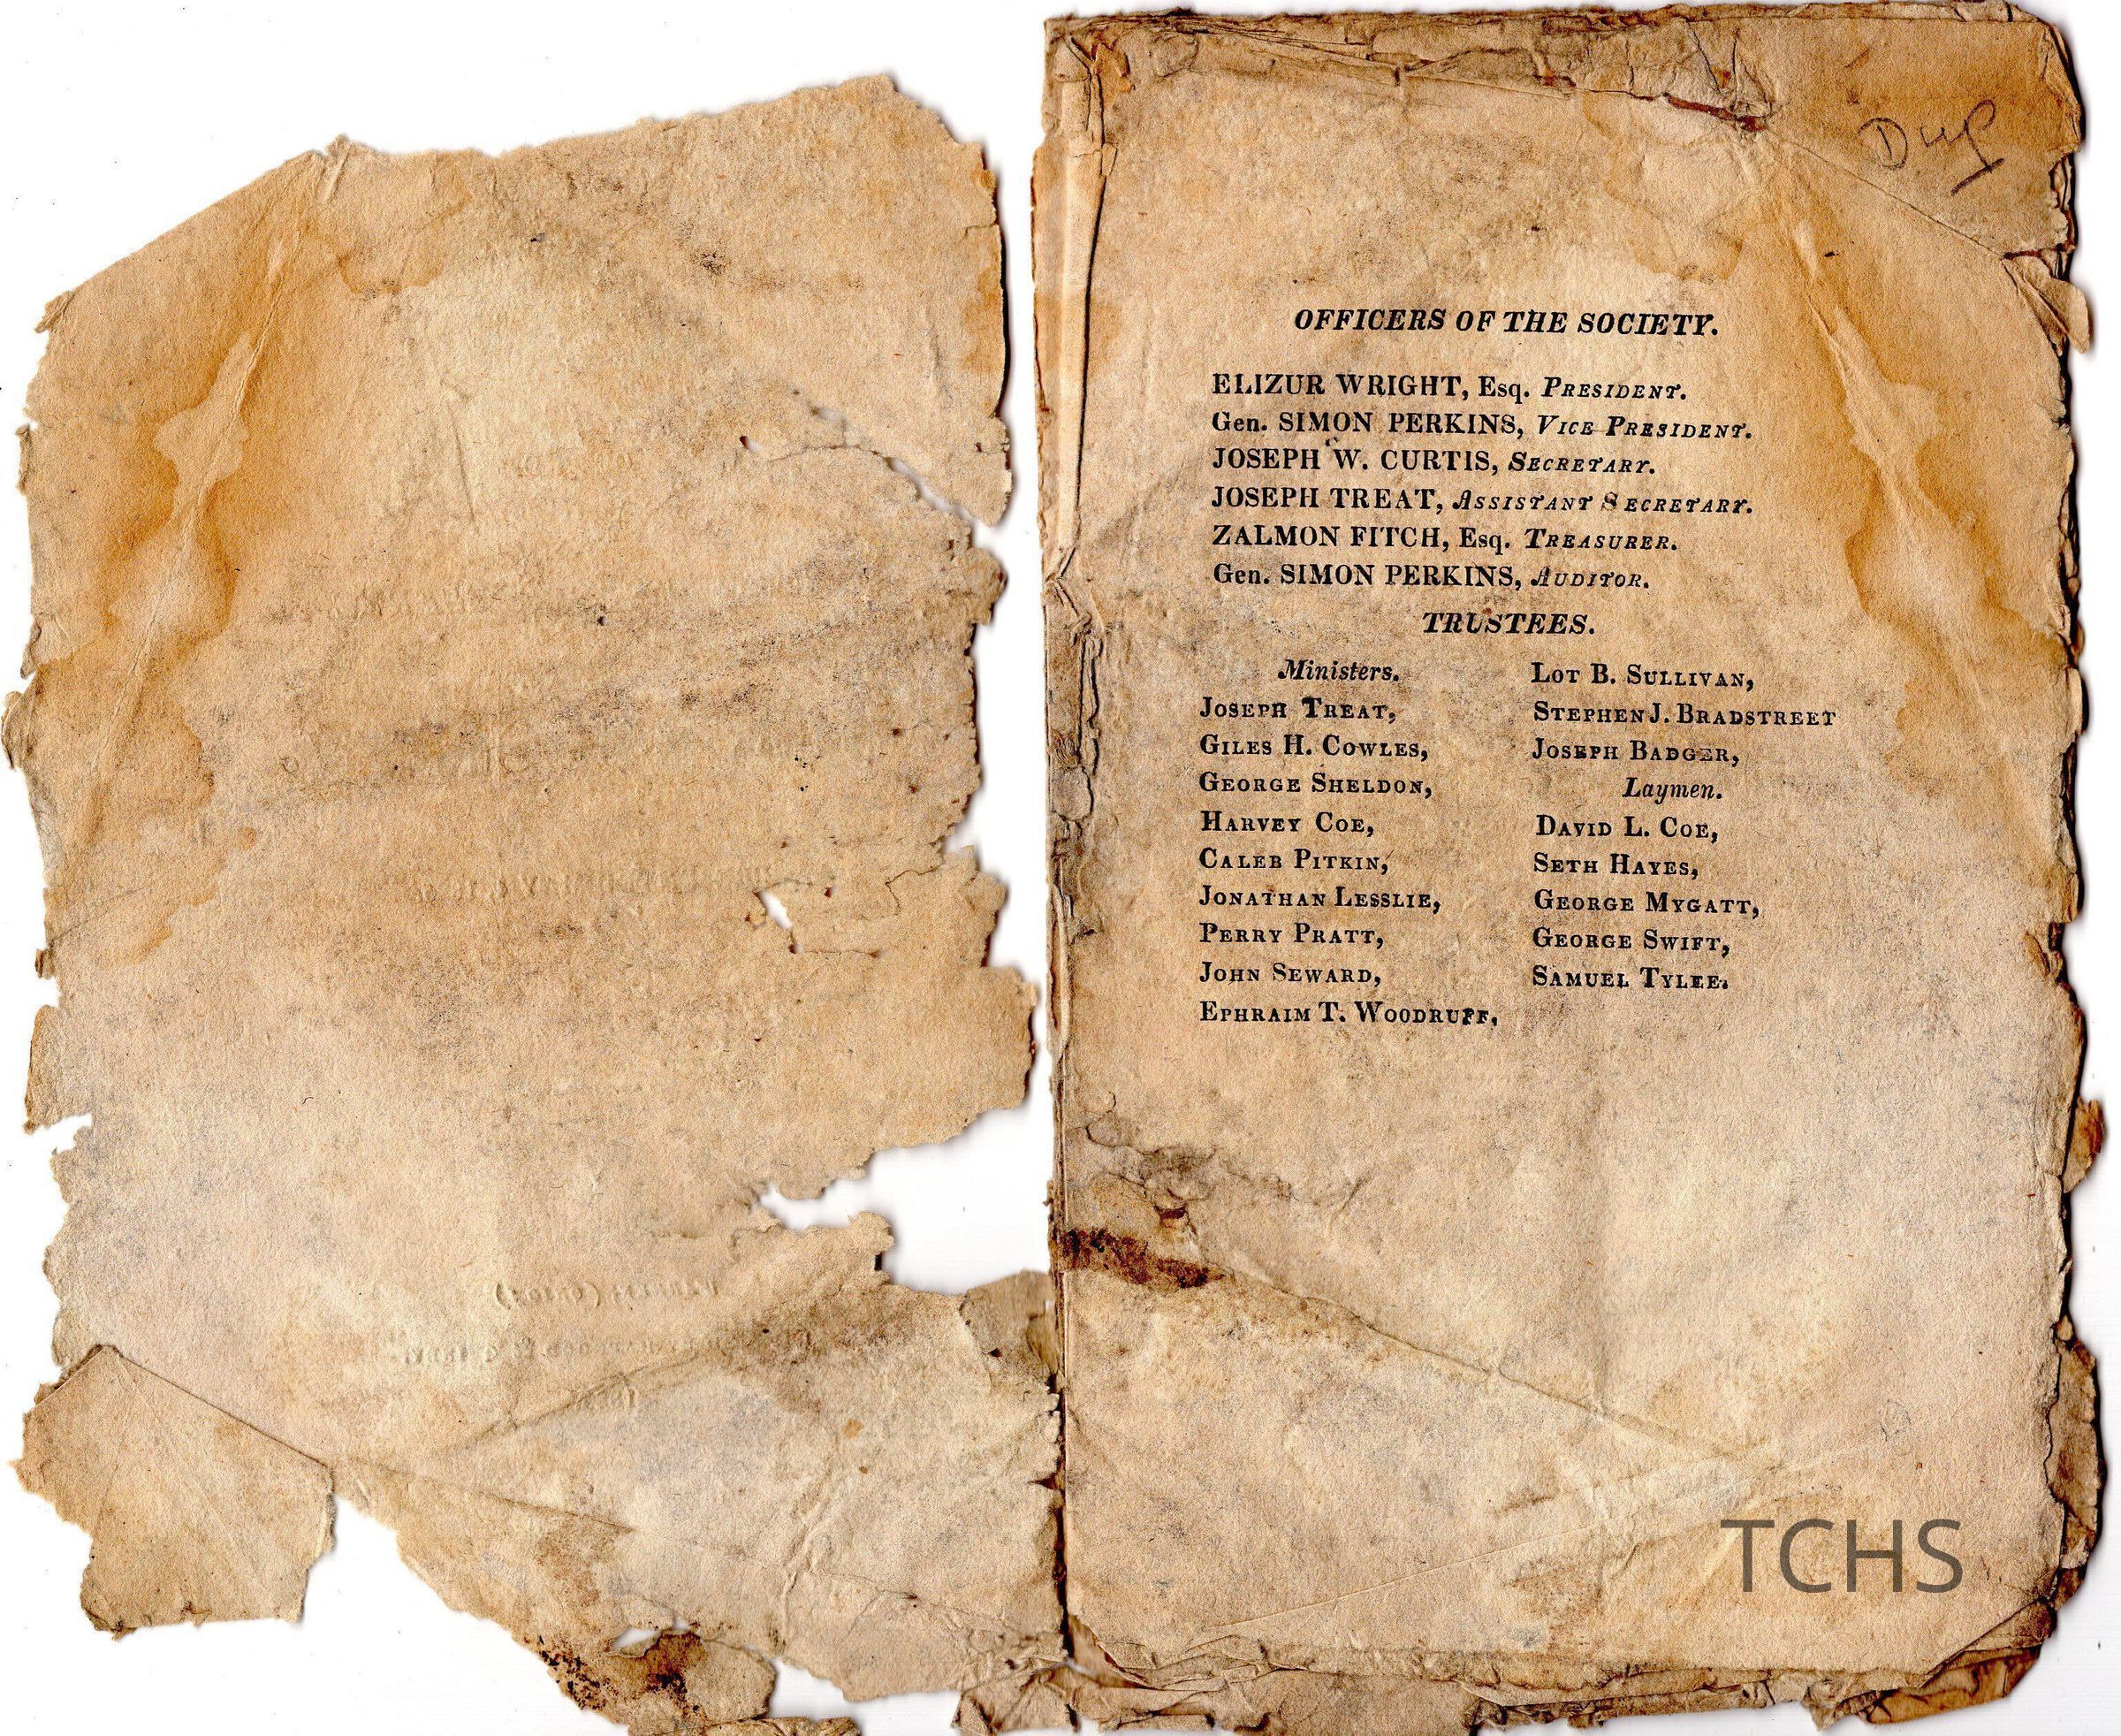 Dup
OFFICERS OF THE SOCIETY.
ELIZUR WRIGHT, Esq. PRESIDENT.
Gen. SIMON PERKINS, VICE PRESIDENT.
JOSEPH W. CURTIS, SECRETARY.
JOSEPH TREAT, ASSISTANT SECRETARY.
ZALMON FITCH, Esq. TREASURER.
Gen. SIMON PERKINS, AUDITOR.
TRUSTEES.
Ministers.
JOSEPH TREAT,
GILES H. COWLES,
GEORGE SHELDON,
HARVEY COE,
CALEB PITKIN,
JONATHAN LESSLIE,
PERRY PRATT,
JOHN SEWARD,
EPHRAIM T. WOODRUFF,
LOT B. SULLIVAN,
STEPHEN J. BRADSTREET
JOSEPH BADGER,
Laymen.
DAVID L. COE,
SETH HAYES,
GEORGE MYGATT,
GEORGE SWIFT,
SAMUEL TYLEE.
TCHS